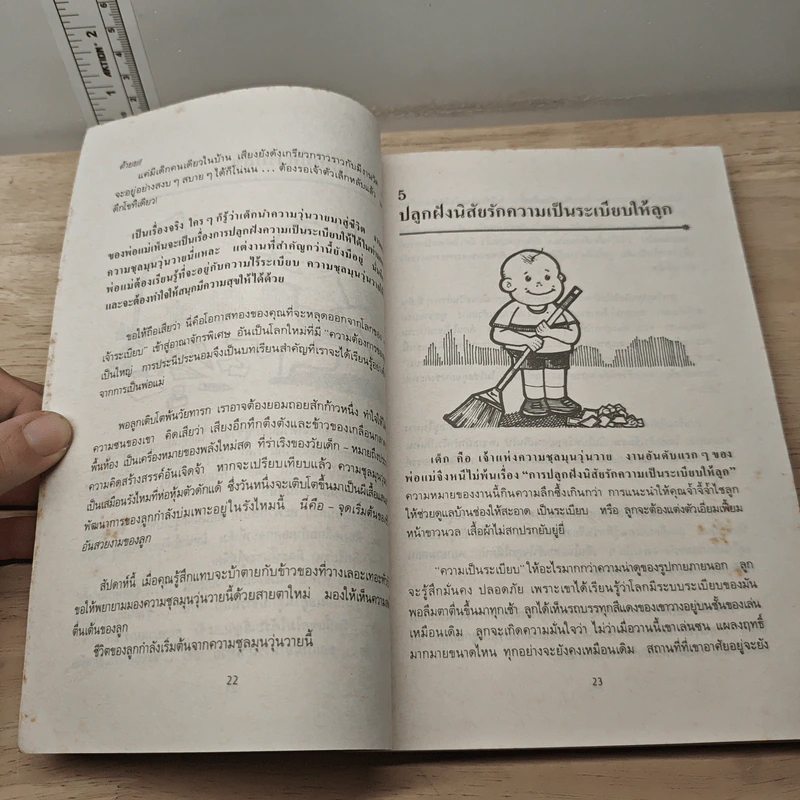 ตัวยย!
แค่มีเด็กคนเดียวในบ้าน เสียงยังดังเกรียวกราวราวกับมีงานวัด
จะอยู่อย่างสงบ ๆ สบาย ๆ ได้ก็โน่นน ... ต้องรอเจ้าตัวเล็กหลับแล้ว
ดึกโขทีเดียว!
เป็นเรื่องจริง ใคร ๆ ก็รู้ว่าเด็กนำความวุ่นวายมาสู่ชีวิต
ของพ่อแม่เห็นจะเป็นเรื่องการปลูกฝังความเป็นระเบียบให้ได้
ความชุลมุนวุ่นวายนี่แหละ แต่งานที่สำคัญกว่านี้ยังมีอยู่
พ่อแม่ต้องเรียนรู้ที่จะอยู่กับความไร้ระเบียบ ความชุลมุนวุ่นวาย
และจะต้องทำใจให้สนุกมีความสุขให้ได้ด้วย
ขอให้ถือเสียว่า นี่คือโอกาสทองของคุณที่จะหลุดออกจากโลกของ
เจ้าระเบียบ" เข้าสู่อาณาจักรพิเศษ อันเป็นโลกใหม่ที่มี "ความต้องการของ
เป็นใหญ่ การประนีประนอมจึงเป็นบทเรียนสำคัญที่เราจะได้เรียนรู้
จากการเป็นพ่อแม่
พอลูกเติบโตพ้นวัยทารก เราอาจต้องยอมถอยสักก้าวหนึ่ง ทำใจให้
ความซนของเขา คิดเสียว่า เสียงอึกทึกตึงตังและข้าวของเกลื่อนกลาด
พื้นห้อง เป็นเครื่องหมายของพลังใหม่สด ที่ร่าเริงของวัยเด็ก - หมายถึง
ความคิดสร้างสรรค์อันเจิดจ้า หากจะเปรียบเทียบแล้ว ความชุลมุน
เป็นเสมือนรังไหมที่ห่อหุ้มตัวดักแด้ ซึ่งวันหนึ่งจะเติบโตขึ้นมาเป็นผีเสื้อ
พัฒนาการของลูกกำลังบ่มเพาะอยู่ในรังไหมนี้ นี่คือ - จุดเริ่มต้นของ
อันสวยงามของลูก
สัปดาห์นี้ เมื่อคุณรู้สึกแทบจะบ้าตายกับข้าวของที่วางเลอะเทอะ
ขอให้พยายามมองความชุลมุนวุ่นวายนี้ด้วยสายตาใหม่ มองให้เห็นความ
ตื่นเต้นของลูก
ชีวิตของลูกกำลังเริ่มต้นจากความชุลมุนวุ่นวายนี้
22
5
ปลูกฝังนิสัยรักความเป็นระเบียบให้ลูก
เด็ก คือ เจ้าแห่งความชุลมุนวุ่นวาย งานอันดับแรก ๆ ของ
พ่อแม่จึงหนีไม่พ้นเรื่อง "การปลูกฝังนิสัยรักความเป็นระเบียบให้ลูก"
ความหมายของงานนี้กินความลึกซึ้งเกินกว่า การแนะนำให้คุณจ้ำจี้จ้ำไชลูก
ให้ช่วยดูแลบ้านช่องให้สะอาด เป็นระเบียบ หรือ ลูกจะต้องแต่งตัวเอี่ยมเพี้ยม
หน้าขาวนวล เสื้อผ้าไม่สกปรกยับยู่ยี่
"ความเป็นระเบียบ" ให้อะไรมากกว่าความน่าดูของรูปกายภายนอก ลูก
จะรู้สึกมั่นคง ปลอดภัย เพราะเขาได้เรียนรู้ว่าโลกมีระบบระเบียบของมัน
พอลืมตาตื่นขึ้นมาทุกเช้า ลูกได้เห็นรถบรรทุกสีแดงของเขาวางอยู่บนชั้นของเล่น
เหมือนเดิม ลูกจะเกิดความมั่นใจว่า ไม่ว่าเมื่อวานนี้เขาเล่นซน แผลงฤทธิ์
มากมายขนาดไหน ทุกอย่างจะยังคงเหมือนเดิม สถานที่ที่เขาอาศัยอยู่จะยัง
23
AKTION
1 2